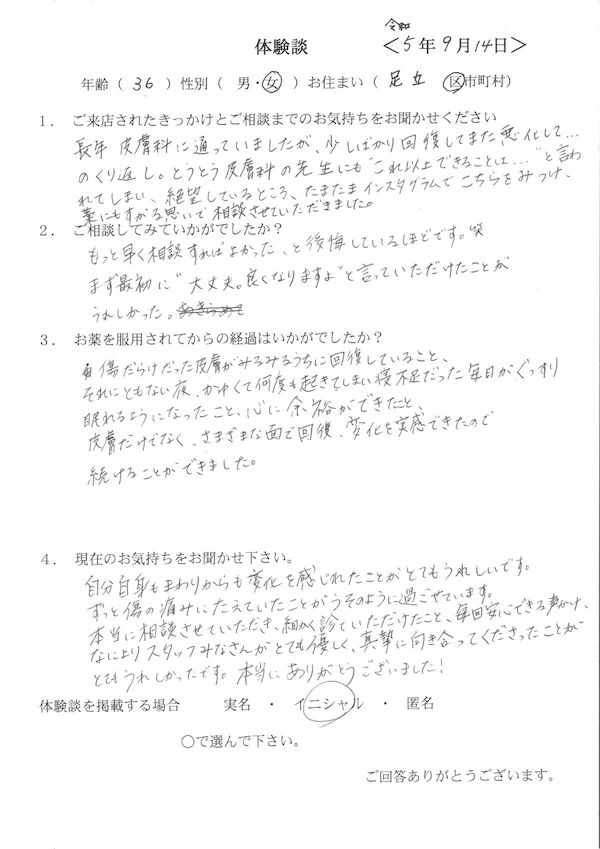 令和
体験談 <5年9月14日>
年齢(36)性別( 男・女 )お住まい( 足立 区市町村)
1. ご来店されたきっかけとご相談までのお気持ちをお聞かせください
長年 皮膚科に通っていましたが、少しばかり回復してまた悪化して...
のくり返し。とうとう皮膚科の先生にも"これ以上できることは..."と言わ
れてしまい、絶望しているところ、たまたまインスタグラムでこちらをみつけ、
藁にもすがる思いで相談させていただきました。
2. ご相談してみていかがでしたか?
もっと早く相談すればよかった、と後悔しているほどです。笑
まず最初に"大丈夫。良くなりますよ"と言っていただけたことが
うれしかった。
3. お薬を服用されてからの経過はいかがでしたか?
傷だらけだった皮膚がみるみるうちに回復していること、
それにともない夜、かゆくて何度も起きてしまい寝不足だった毎日がぐっすり
眠れるようになったこと、心に余裕ができたこと、
皮膚だけでなく、さまざまな面で回復、変化を実感できたので
続けることができました。
4. 現在のお気持ちをお聞かせ下さい。
自分自身もまわりからも変化を感じれたことがとてもうれしいです。
ずっと傷の痛みにたえていたことがうそのように過ごせています。
本当に相談させていただき、細かく診ていただけたこと、毎回安心できる声かけ、
なによりスタッフみなさんがとても優しく、真摯に向き合ってくださったことが
とてもうれしかったです。本当にありがとうございました!
体験談を掲載する場合 実名 ・ イニシャル ・ 匿名
○で選んで下さい。
ご回答ありがとうございます。